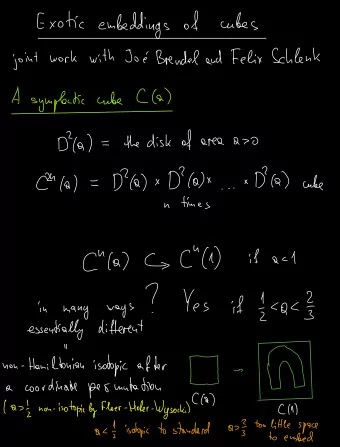 Exotic embeddings of cubes
joint work with Joé Brendel and Felix Schlenk
A symplectic cube C(a)
D²(a) = the disk of area a>0
C²ⁿ(a) = D²(a) × D²(a) × ... × D²(a) cube
n times
Cⁿ(a) ↪ Cⁿ(1) if a<1
in many ways ? Yes if 1/2 < a < 2/3
essentially different
"
non-Hamiltonian isotopic after
a coordinate permutation
(a > 1/2 non-isotopic by Floer-Hofer-Wysocki)
C(a)
C(1)
a < 1/2 isotopic to standard
a ≥ 2/3 too little space
to embed